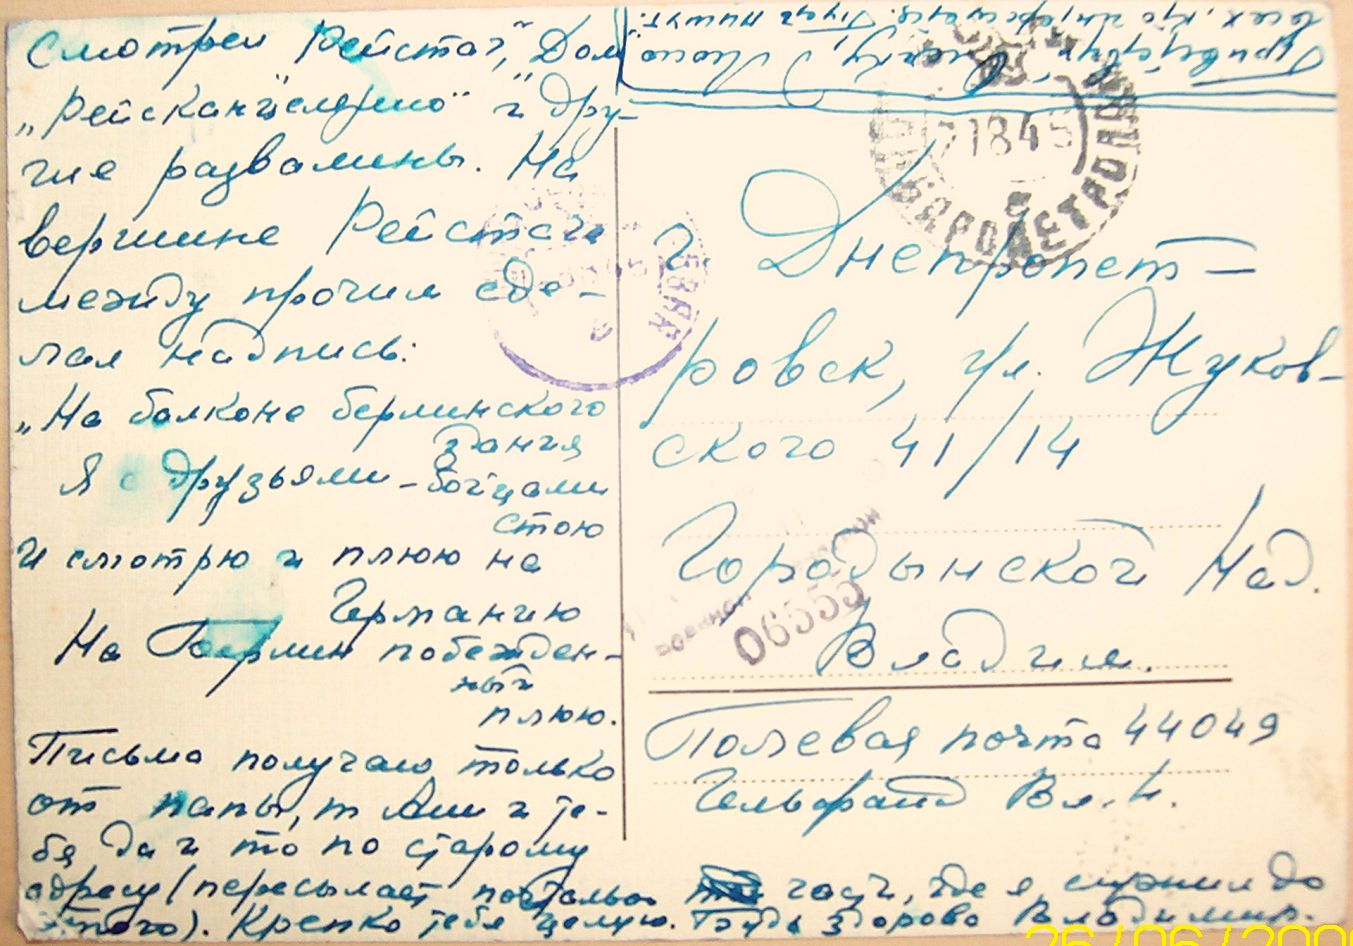 Смотрел "Рейстаг", "Дом
"Рейсканцелярию" и дру-
гие развалины. На
вершине Рейстага
между прочим сде-
лал надпись:
"На балконе берлинского
здания
Я с друзьями-бойцами
стою
И смотрю и плюю на
Германию
На Берлин побежден-
ный
плюю.
Письма получаю только
от папы, т Ани и те-
бя да и то по старому
адресу (пересылает почтальон части, где я служил до
этого). Крепко тебя целую. Будь здорова Владимир.
всех, кто интересуется. Пусть пишут.
Приветствуй Олю
71845
ДНЕПРОПЕТРОВСК
г. Днепропет-
ровск, ул. Жуков-
ского 41/14
Городынской Над.
Владим.
06555
Полевая почта 44049
Гельфанд Вл. Н.
26/06/200